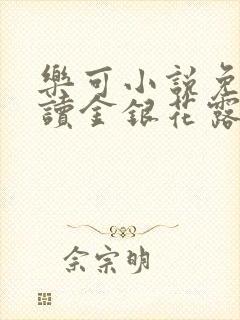 樂可小說免
讀金銀花露
佘宗明